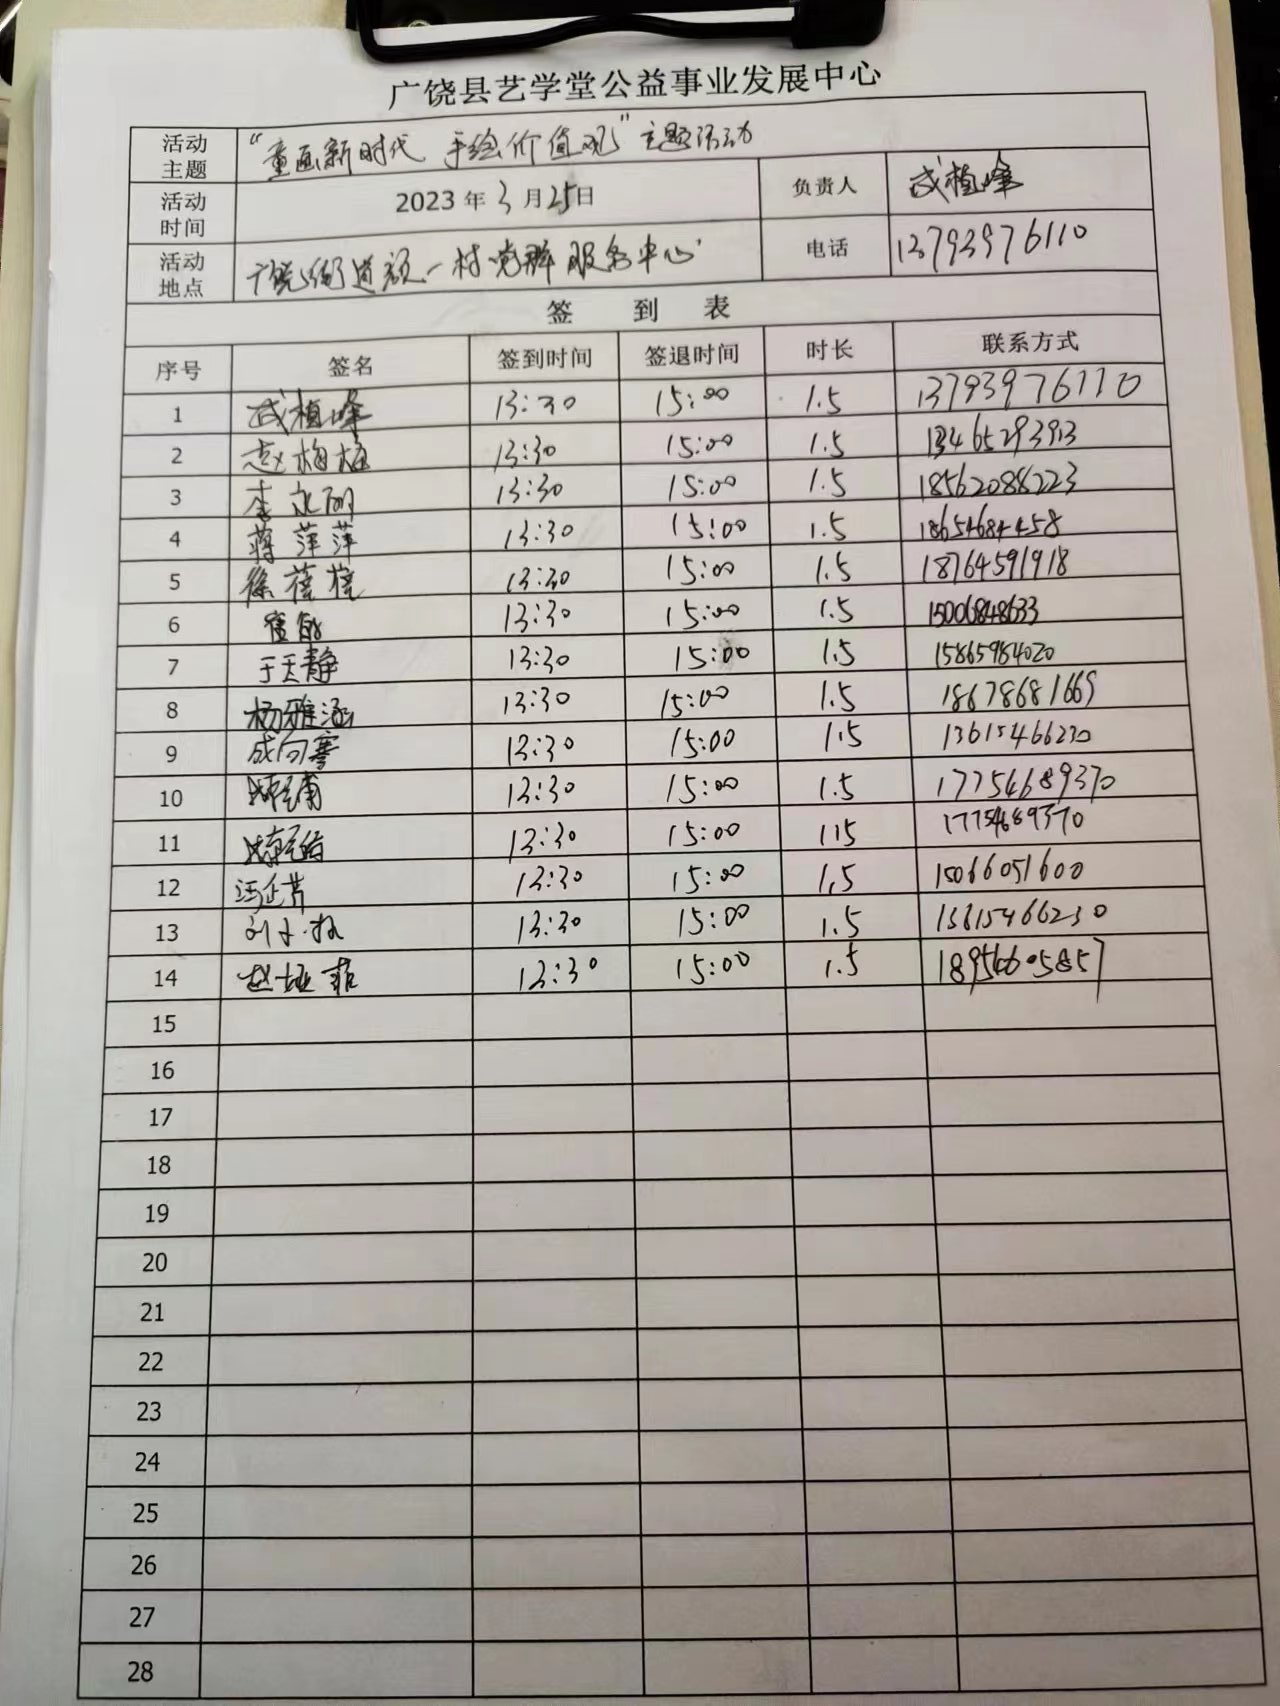 广饶县艺学堂公益事业发展中心
活动主题 “童画新时代 手绘价值观”主题活动
活动时间 2023年3月25日 负责人 成植峰
活动地点 广饶街道颜一村党群服务中心 电话 13793976110
签到表
序号 签名 签到时间 签退时间 时长 联系方式
1 成植峰 13:30 15:00 1.5 13793976110
2 赵梅梅 13:30 15:00 1.5 13465293913
3 李永丽 13:30 15:00 1.5 18562088223
4 蒋萍萍 13:30 15:00 1.5 18654684458
5 徐蓓蓓 13:30 15:00 1.5 18764591918
6 崔敏 13:30 15:00 1.5 15006848633
7 于天静 13:30 15:00 1.5 15865984020
8 杨雅涵 13:30 15:00 1.5 18678681669
9 成向蹇 13:30 15:00 1.5 13615466230
10 13:30 15:00 1.5 17754689370
11 13:30 15:00 1.5 17754689370
12 冯正芹 13:30 15:00 1.5 15066051600
13 刘小 13:30 15:00 1.5 13615466230
14 赵亚菲 13:30 15:00 1.5 18956605857
15
16
17
18
19
20
21
22
23
24
25
26
27
28